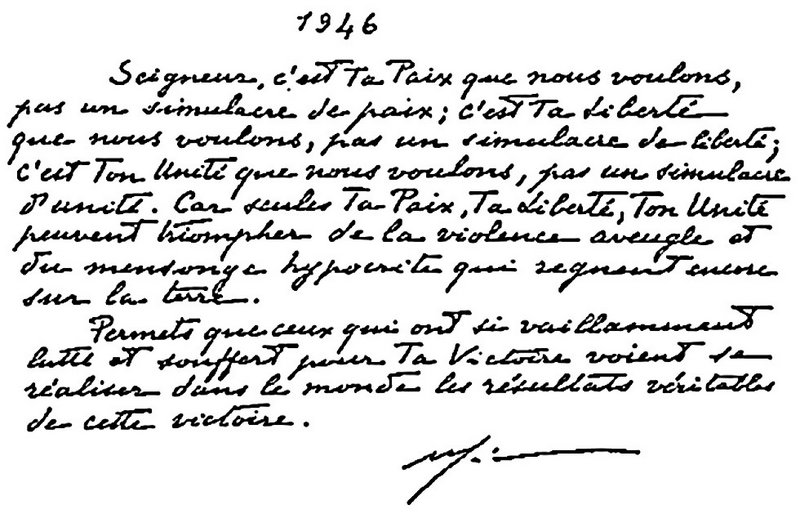 1946
Seigneur, c'est Ta Paix que nous voulons,
pas un simulacre de paix; c'est Ta Liberté
que nous voulons, pas un simulacre de liberté;
c'est Ton Unité que nous voulons, pas un simulacre
d'unité. Car seules Ta Paix, Ta Liberté, Ton Unité
peuvent triompher de la violence aveugle et
du mensonge hypocrite qui regnent encore
sur la terre.
Permets que ceux qui ont si vaillamment
lutté et souffert pour Ta Victoire voient se
réaliser dans le monde les résultats véritables
de cette victoire.